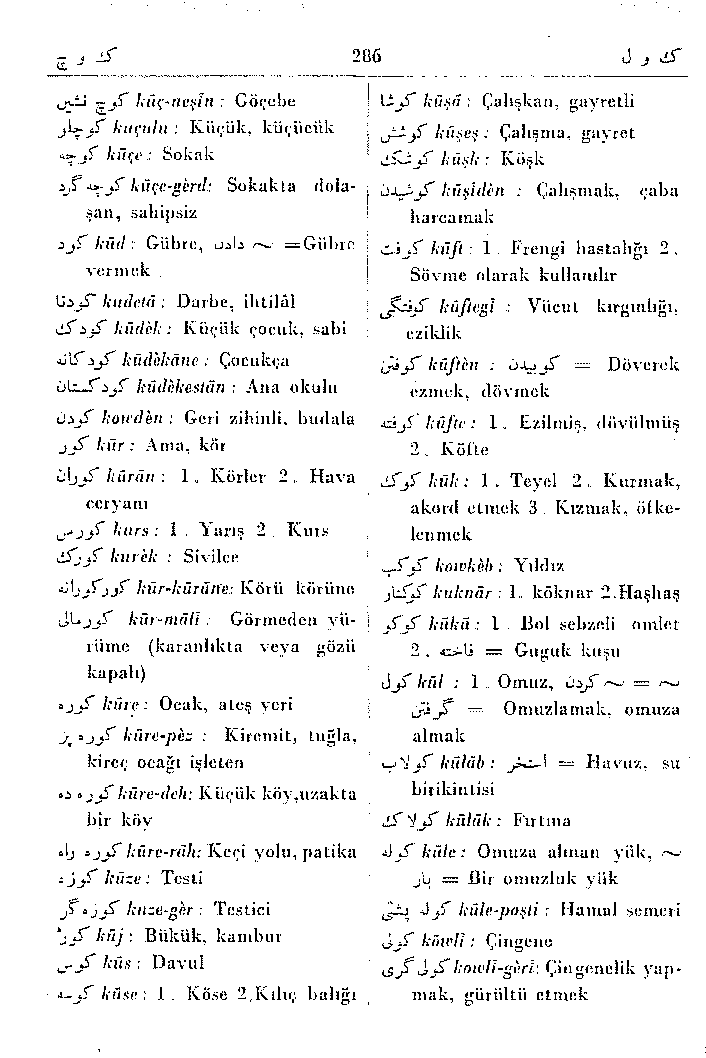 ك و چ 286 ك و ل
كوچ نشین kūç-neşîn : Göçebe
كوچلو kuçulu : Küçük, küçücük
كوچه kûçe : Sokak
كوچه گرد kûçe-gèrd: Sokakta dola-
şan, sahipsiz
كود kūd : Gübre, دادن ~ =Gübre
vermek .
كودتا kudetâ : Darbe, ihtilâl
كودك kûdèk : Küçük çocuk, sabi
كودكانه kûdèkâne : Çocukça
كودكستان kûdèkestân : Ana okulu
كودن kowdèn : Geri zihinli, budala
كور kūr : Ama, kör
كوران kūrān : 1. Körler 2. Hava
ceryanı
كورس kurs : 1 . Yarış 2 . Kurs
كورك kurèk : Sivilce
كوركورانه kūr-kūrūne: Körü körüne
كورمالی kūr-mālî : Görmeden yü-
rüme (karanlıkta veya gözü
kapalı)
كوره kūre : Ocak, ateş yeri
كوره پز kūre-pèz : Kiremit, tuğla,
kireç ocağı işleten
كوره ده kūre-deh: Küçük köy,uzakta
bir köy
كوره راه kūre-râh: Keçi yolu, patika
كوزه kūze : Testi
كوزه گر kuze-gèr : Testici
كوژ kūj : Bükük, kambur
كوس kūs : Davul
كوسه kūse : 1 . Köse 2.Kılıç balığı
كوشا kūşâ : Çalışkan, gayretli
كوشش kūşeş : Çalışma, gayret
كوشك kūşk : Köşk
كوشیدن kūşîdèn : Çalışmak, çaba
harcamak
كوفت kūft : 1 . Frengi hastalığı 2 .
Sövme olarak kullanılır
كوفتگی kūftegî : Vücut kırgınlığı,
eziklik
كوفتن kūftèn : كوبیدن = Döverek
ezmek, dövmek
كوفته kūfte : 1. Ezilmiş, dövülmüş
2. Köfte
كوك kūk : 1 . Teyel 2. Kurmak,
akord etmek 3 . Kızmak, öfke-
lenmek
كوكب kowkèb : Yıldız
كوكنار kuknâr : 1. köknar 2.Haşhaş
كوكو kūkū : 1 . Bol sebzeli omlet
2 . فاخته = Guguk kuşu
كول kūl : 1 . Omuz, كردن ~ = ~
گرفتن = Omuzlamak, omuza
almak
كولاب kūlâb : استخر = Havuz, su
birikintisi
كولاك kūlâk : Fırtına
كوله kūle : Omuza alınan yük, ~
بار = Bir omuzluk yük
كوله پشتی kūle-poşti : Hamal semeri
كولی kōwlî : Çingene
كولی گری kowlî-gèrî: Çingenelik yap-
mak, gürültü etmek